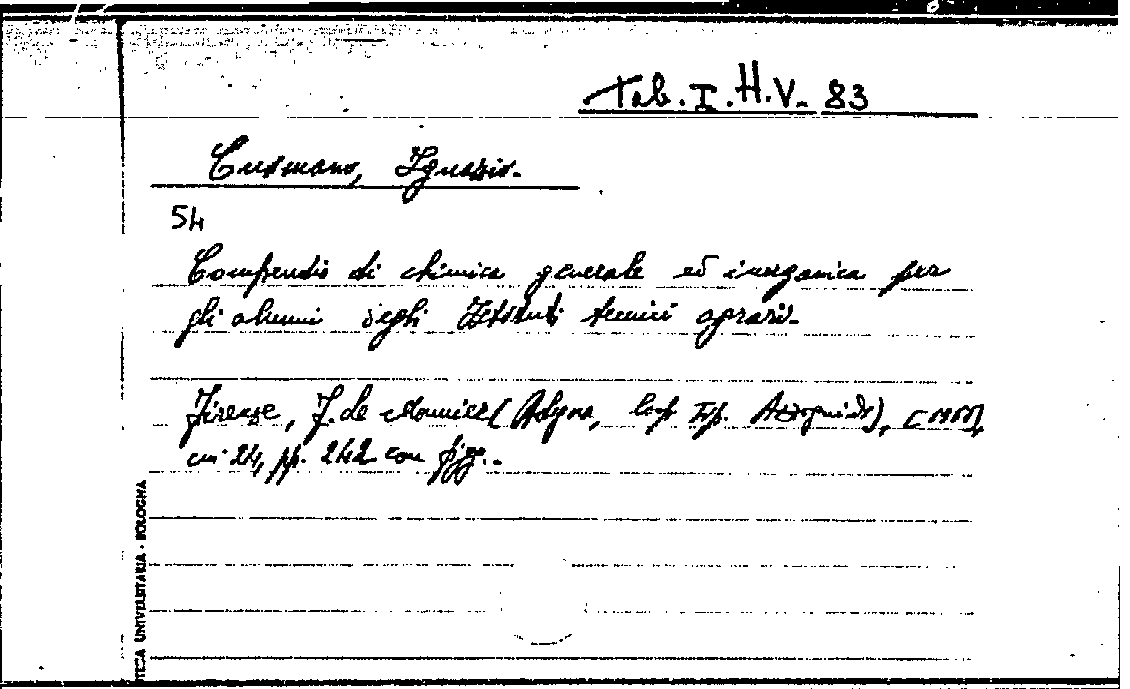 Tab. I. H.V. 83
Cusmano, Ignazio.
54
Compendio di chimica generale ed inorganica per
gli alunni degli Istituti tecnici agrari.
Firenze, F. le Monnier (Bologna, Coop. Tip. Azzoguidi),
cm 24, pp. 242 con figg.
TECA UNIVERSITARIA - BOLOGNA